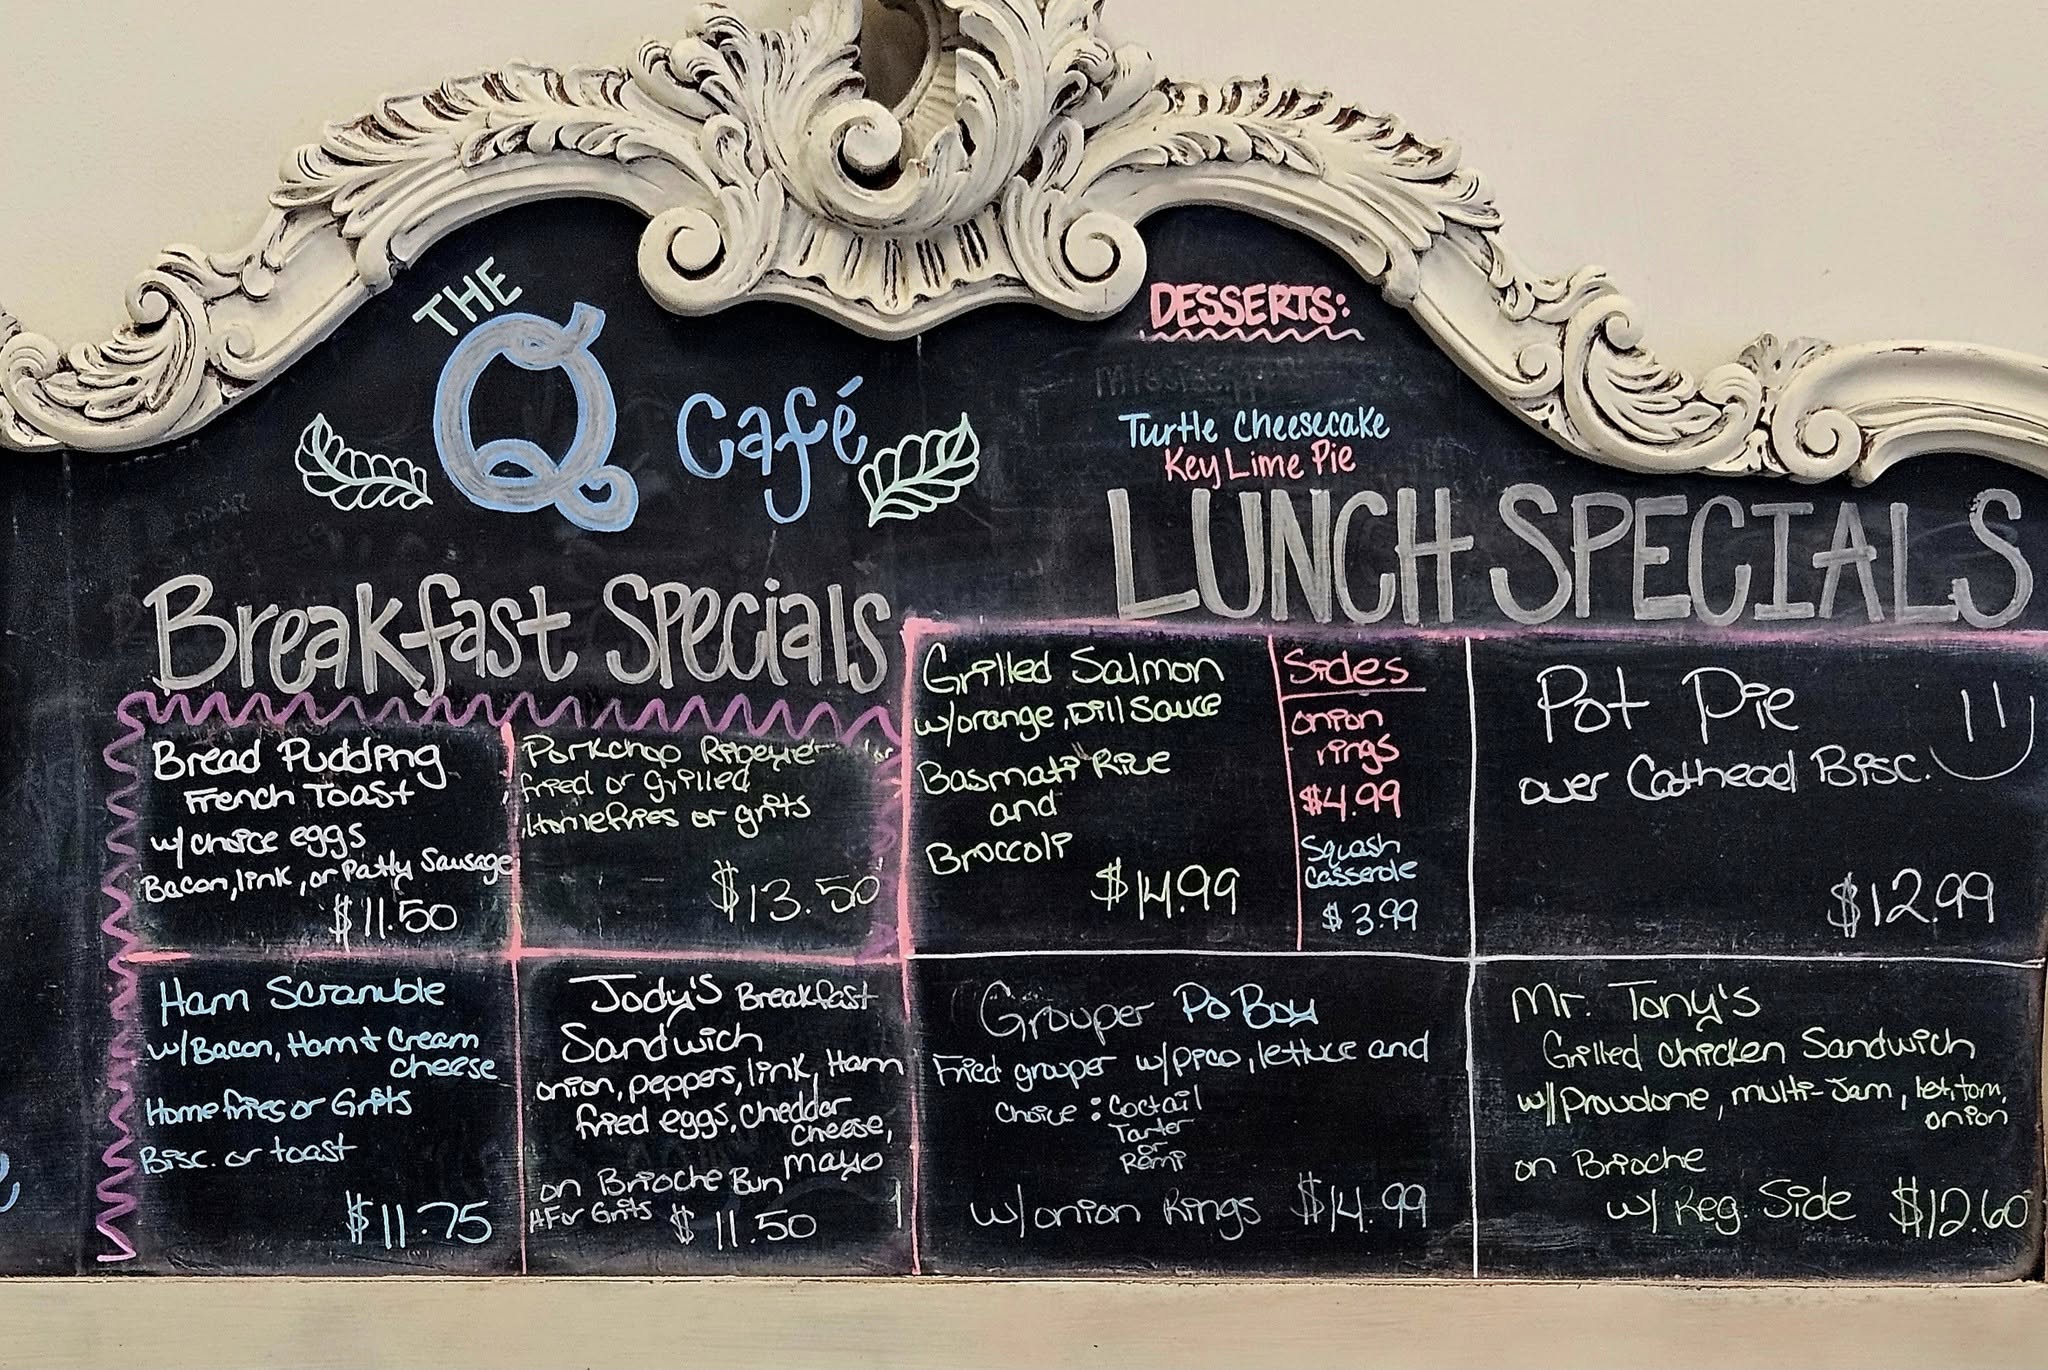 THE
Q Café
DESSERTS:
Turtle Cheesecake
Key Lime Pie
Breakfast Specials
Bread Pudding
French Toast
w/ choice eggs
Bacon, link, or Patty Sausage
$11.50
Porkchop Ribeye
fried or Grilled
Homefries or grits
$13.50
Ham Scramble
w/Bacon, Ham + Cream
cheese
Homefries or Grits
Bisc. or toast
$11.75
Jody's Breakfast
Sandwich
onion, peppers, link, Ham
fried eggs, cheddar
cheese,
mayo
on Brioche Bun
HF or Grits $11.50
LUNCH SPECIALS
Grilled Salmon
w/orange, Dill Sauce
Basmati Rice
and
Broccoli
$14.99
Sides
onion
rings
$4.99
Squash
casserole
$3.99
Pot Pie
over Cathead Bisc.
$12.99
Grouper Po Boy
Fried grouper w/pico, lettuce and
choice: Coctail
Tarter
or
Remi
w/onion Rings $14.99
Mr. Tony's
Grilled chicken Sandwich
w/ Proudone, multi-Jam, let, tom,
onion
on Brioche
w/ Reg. Side $12.60